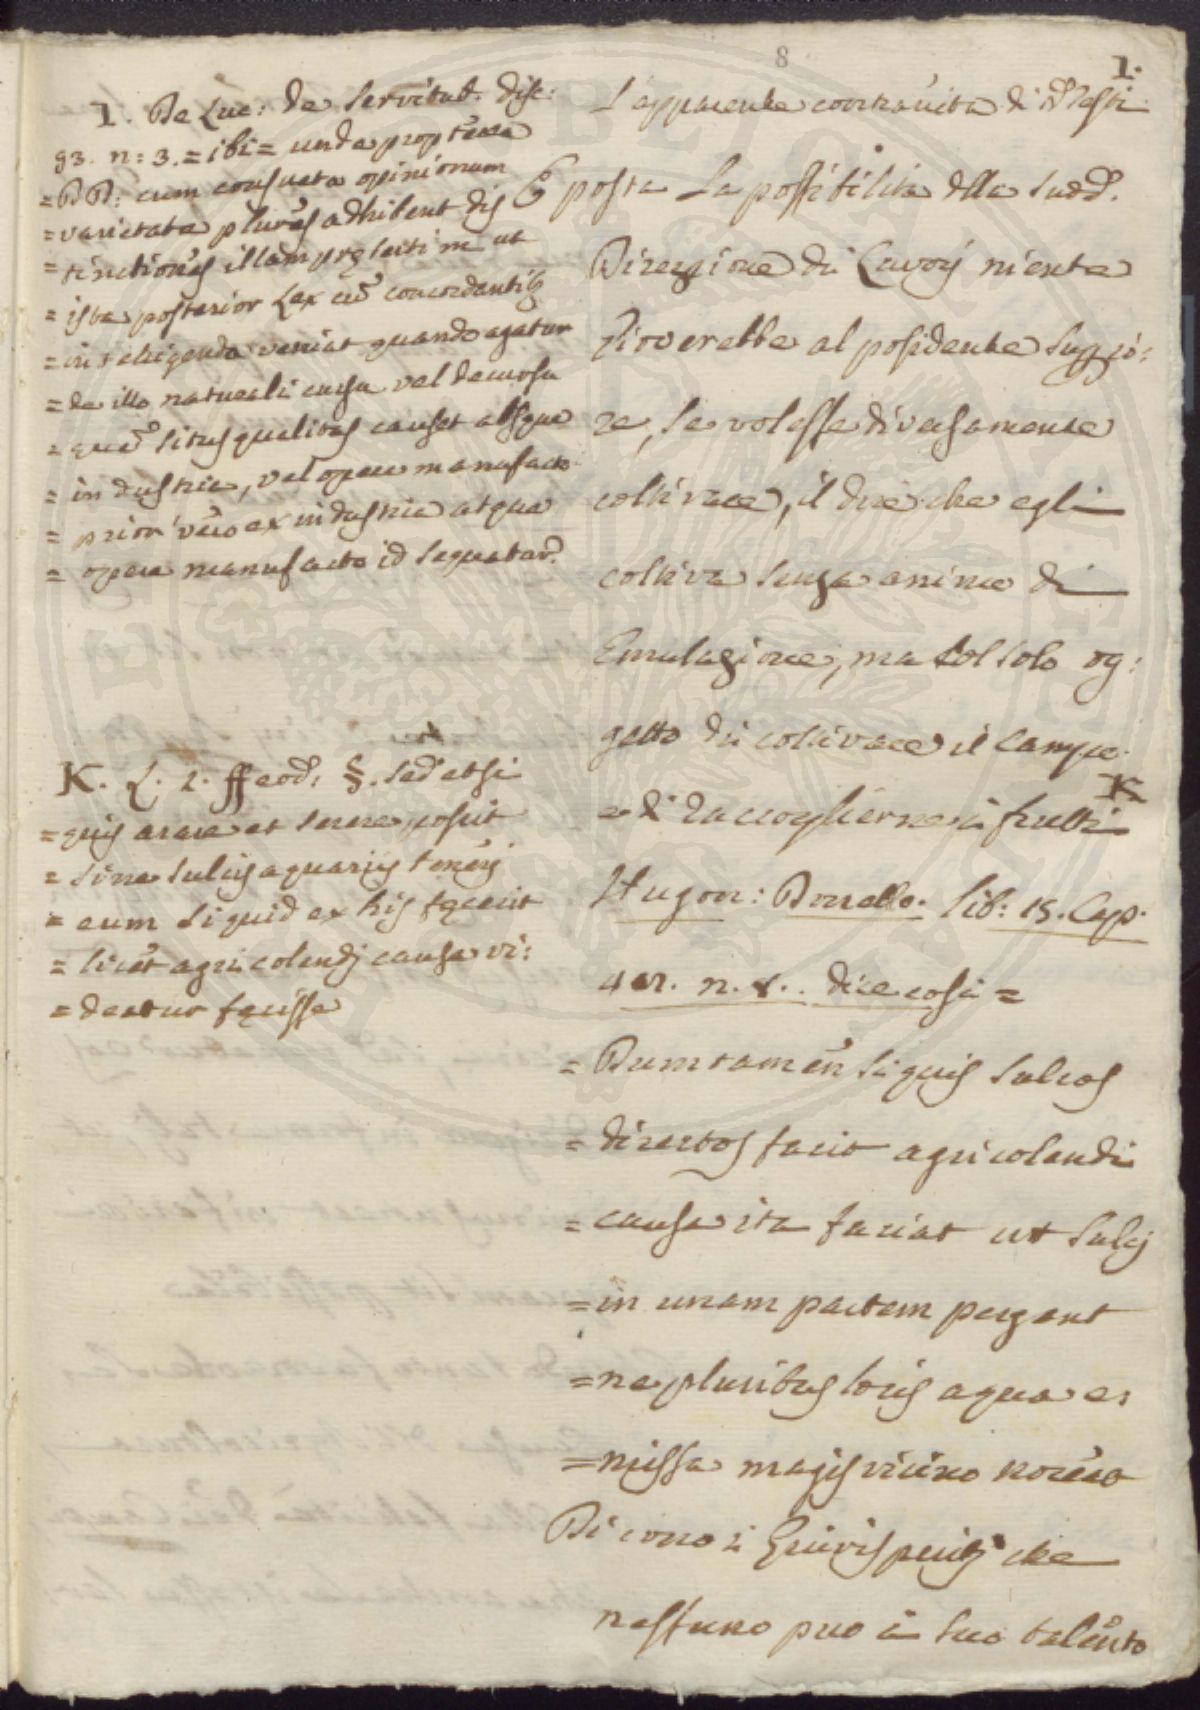 8
1.
I. De Luc: de servitut. disc:
93. n: 3. = ibi = unde propterea
= DD: cum consueta opinionum
= varietate plures adhibent dis
= tinctiones illam pręsertim ut
= ista posterior Lex cũ concordantiis
= intelligenda veniat quando agatur
= de illo naturali cursu vel decursu
= quẽ situs qualitas causet absque
= industria, vel opere manufacto
= prior verò ex industria atque
= opere manufacto id sequatur.
K. L. 1. ff eod: §. sed et si
= quis arare et serere possit
= sine sulcis aquariis teneri
= eum si quid ex his fecerit
= licet agri colendi causa vi:
= deatur fecisse
l'apparente contrarietà di dd. Testi.
E posta la possibilità della sudd.
Direzione di Lavori niente
gioverebbe al possidente superio:
re, se volesse diversamente
coltivare, il dire che egli
coltiva senza animo di
Emulazione, ma col solo og:
getto di coltivare il Campo
e di raccoglierne i frutti K
Hugon: Donello. lib: 15. Cap.
401. n. 8. dice così =
= Dum tamen si quis sulcos
= directos facit agri colendi
= causa ita faciat ut sulci
= in unam partem pergant
= ne pluribus locis aqua e:
= missa magis vicino noceat
Dicono i Giurisperiti che
nessuno può a suo talento